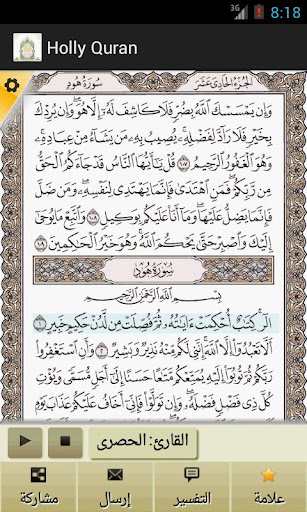 3G 8:18
Holly Quran
الجُزْءُ الحَادِى عَشَرَ سُورَةُ هُودٍ
وَإِن يَمْسَسْكَ ٱللَّهُ بِضُرٍّ فَلَا كَاشِفَ لَهُۥٓ إِلَّا هُوَ ۖ وَإِن يُرِدْكَ
بِخَيْرٍ فَلَا رَآدَّ لِفَضْلِهِۦ ۚ يُصِيبُ بِهِۦ مَن يَشَآءُ مِنْ عِبَادِهِۦ ۚ
وَهُوَ ٱلْغَفُورُ ٱلرَّحِيمُ ١٠٧ قُلْ يَٰٓأَيُّهَا ٱلنَّاسُ قَدْ جَآءَكُمُ ٱلْحَقُّ
مِن رَّبِّكُمْ ۖ فَمَنِ ٱهْتَدَىٰ فَإِنَّمَا يَهْتَدِى لِنَفْسِهِۦ ۖ وَمَن ضَلَّ
فَإِنَّمَا يَضِلُّ عَلَيْهَا ۖ وَمَآ أَنَا۠ عَلَيْكُم بِوَكِيلٍ ١٠٨ وَٱتَّبِعْ مَا يُوحَىٰٓ
إِلَيْكَ وَٱصْبِرْ حَتَّىٰ يَحْكُمَ ٱللَّهُ ۚ وَهُوَ خَيْرُ ٱلْحَٰكِمِينَ ١٠٩
سُورَةُ هُودٍ
بِسْمِ ٱللَّهِ ٱلرَّحْمَٰنِ ٱلرَّحِيمِ
الٓر ۚ كِتَٰبٌ أُحْكِمَتْ ءَايَٰتُهُۥ ثُمَّ فُصِّلَتْ مِن لَّدُنْ حَكِيمٍ خَبِيرٍ ١
أَلَّا تَعْبُدُوٓا۟ إِلَّا ٱللَّهَ ۚ إِنَّنِى لَكُم مِّنْهُ نَذِيرٌ وَبَشِيرٌ ٢ وَأَنِ ٱسْتَغْفِرُوا۟
رَبَّكُمْ ثُمَّ تُوبُوٓا۟ إِلَيْهِ يُمَتِّعْكُم مَّتَٰعًا حَسَنًا إِلَىٰٓ أَجَلٍ مُّسَمًّى وَيُؤْتِ
كُلَّ ذِى فَضْلٍ فَضْلَهُۥ ۖ وَإِن تَوَلَّوْا۟ فَإِنِّىٓ أَخَافُ عَلَيْكُمْ
القارئ: الحصرى
علامة
التفسير
إرسال
مشاركة